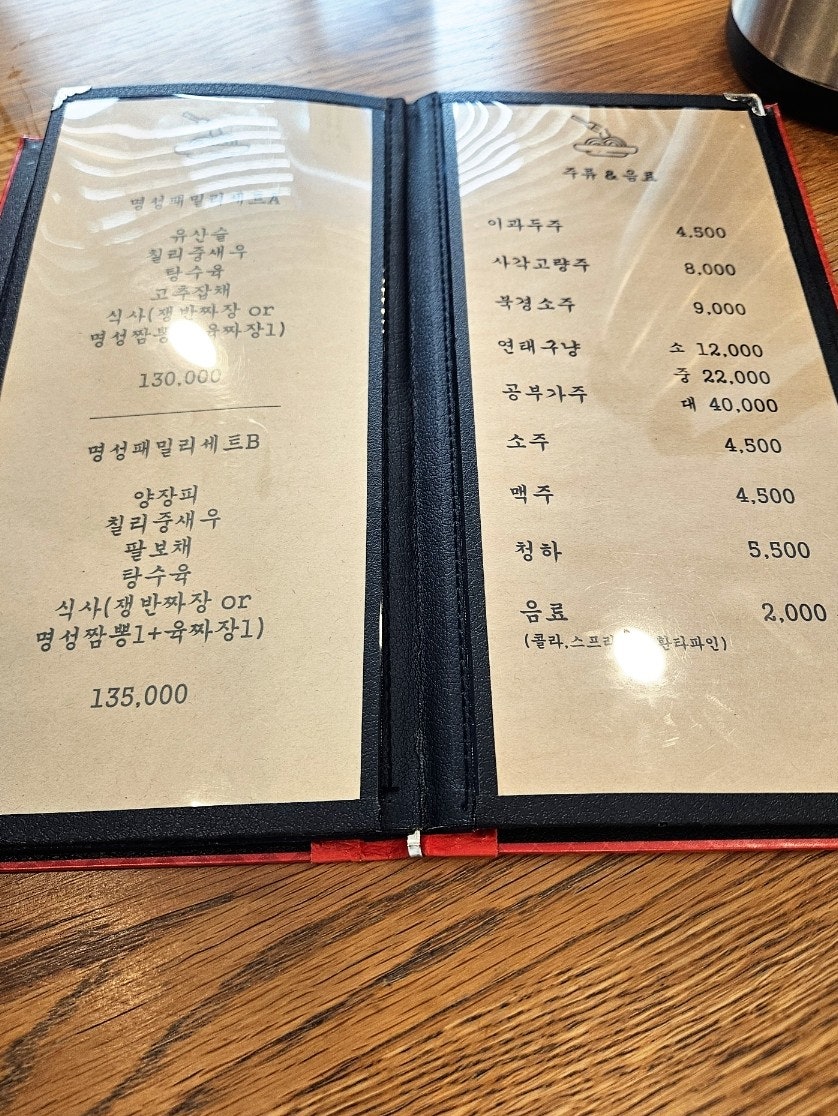 명성패밀리세트A
유산슬
칠리중새우
탕수육
고추잡채
식사(쟁반짜장 or
명성짬뽕 육짜장1)
130,000
명성패밀리세트B
양장피
칠리중새우
팔보채
탕수육
식사(쟁반짜장 or
명성짬뽕1+육짜장1)
135,000
주류 & 음료
이과두주 4,500
사각고량주 8,000
북경소주 9,000
연태구냥 소 12,000
중 22,000
공부가주 대 40,000
소주 4,500
맥주 4,500
청하 5,500
음료 2,000
(콜라,스프라 환타파인)